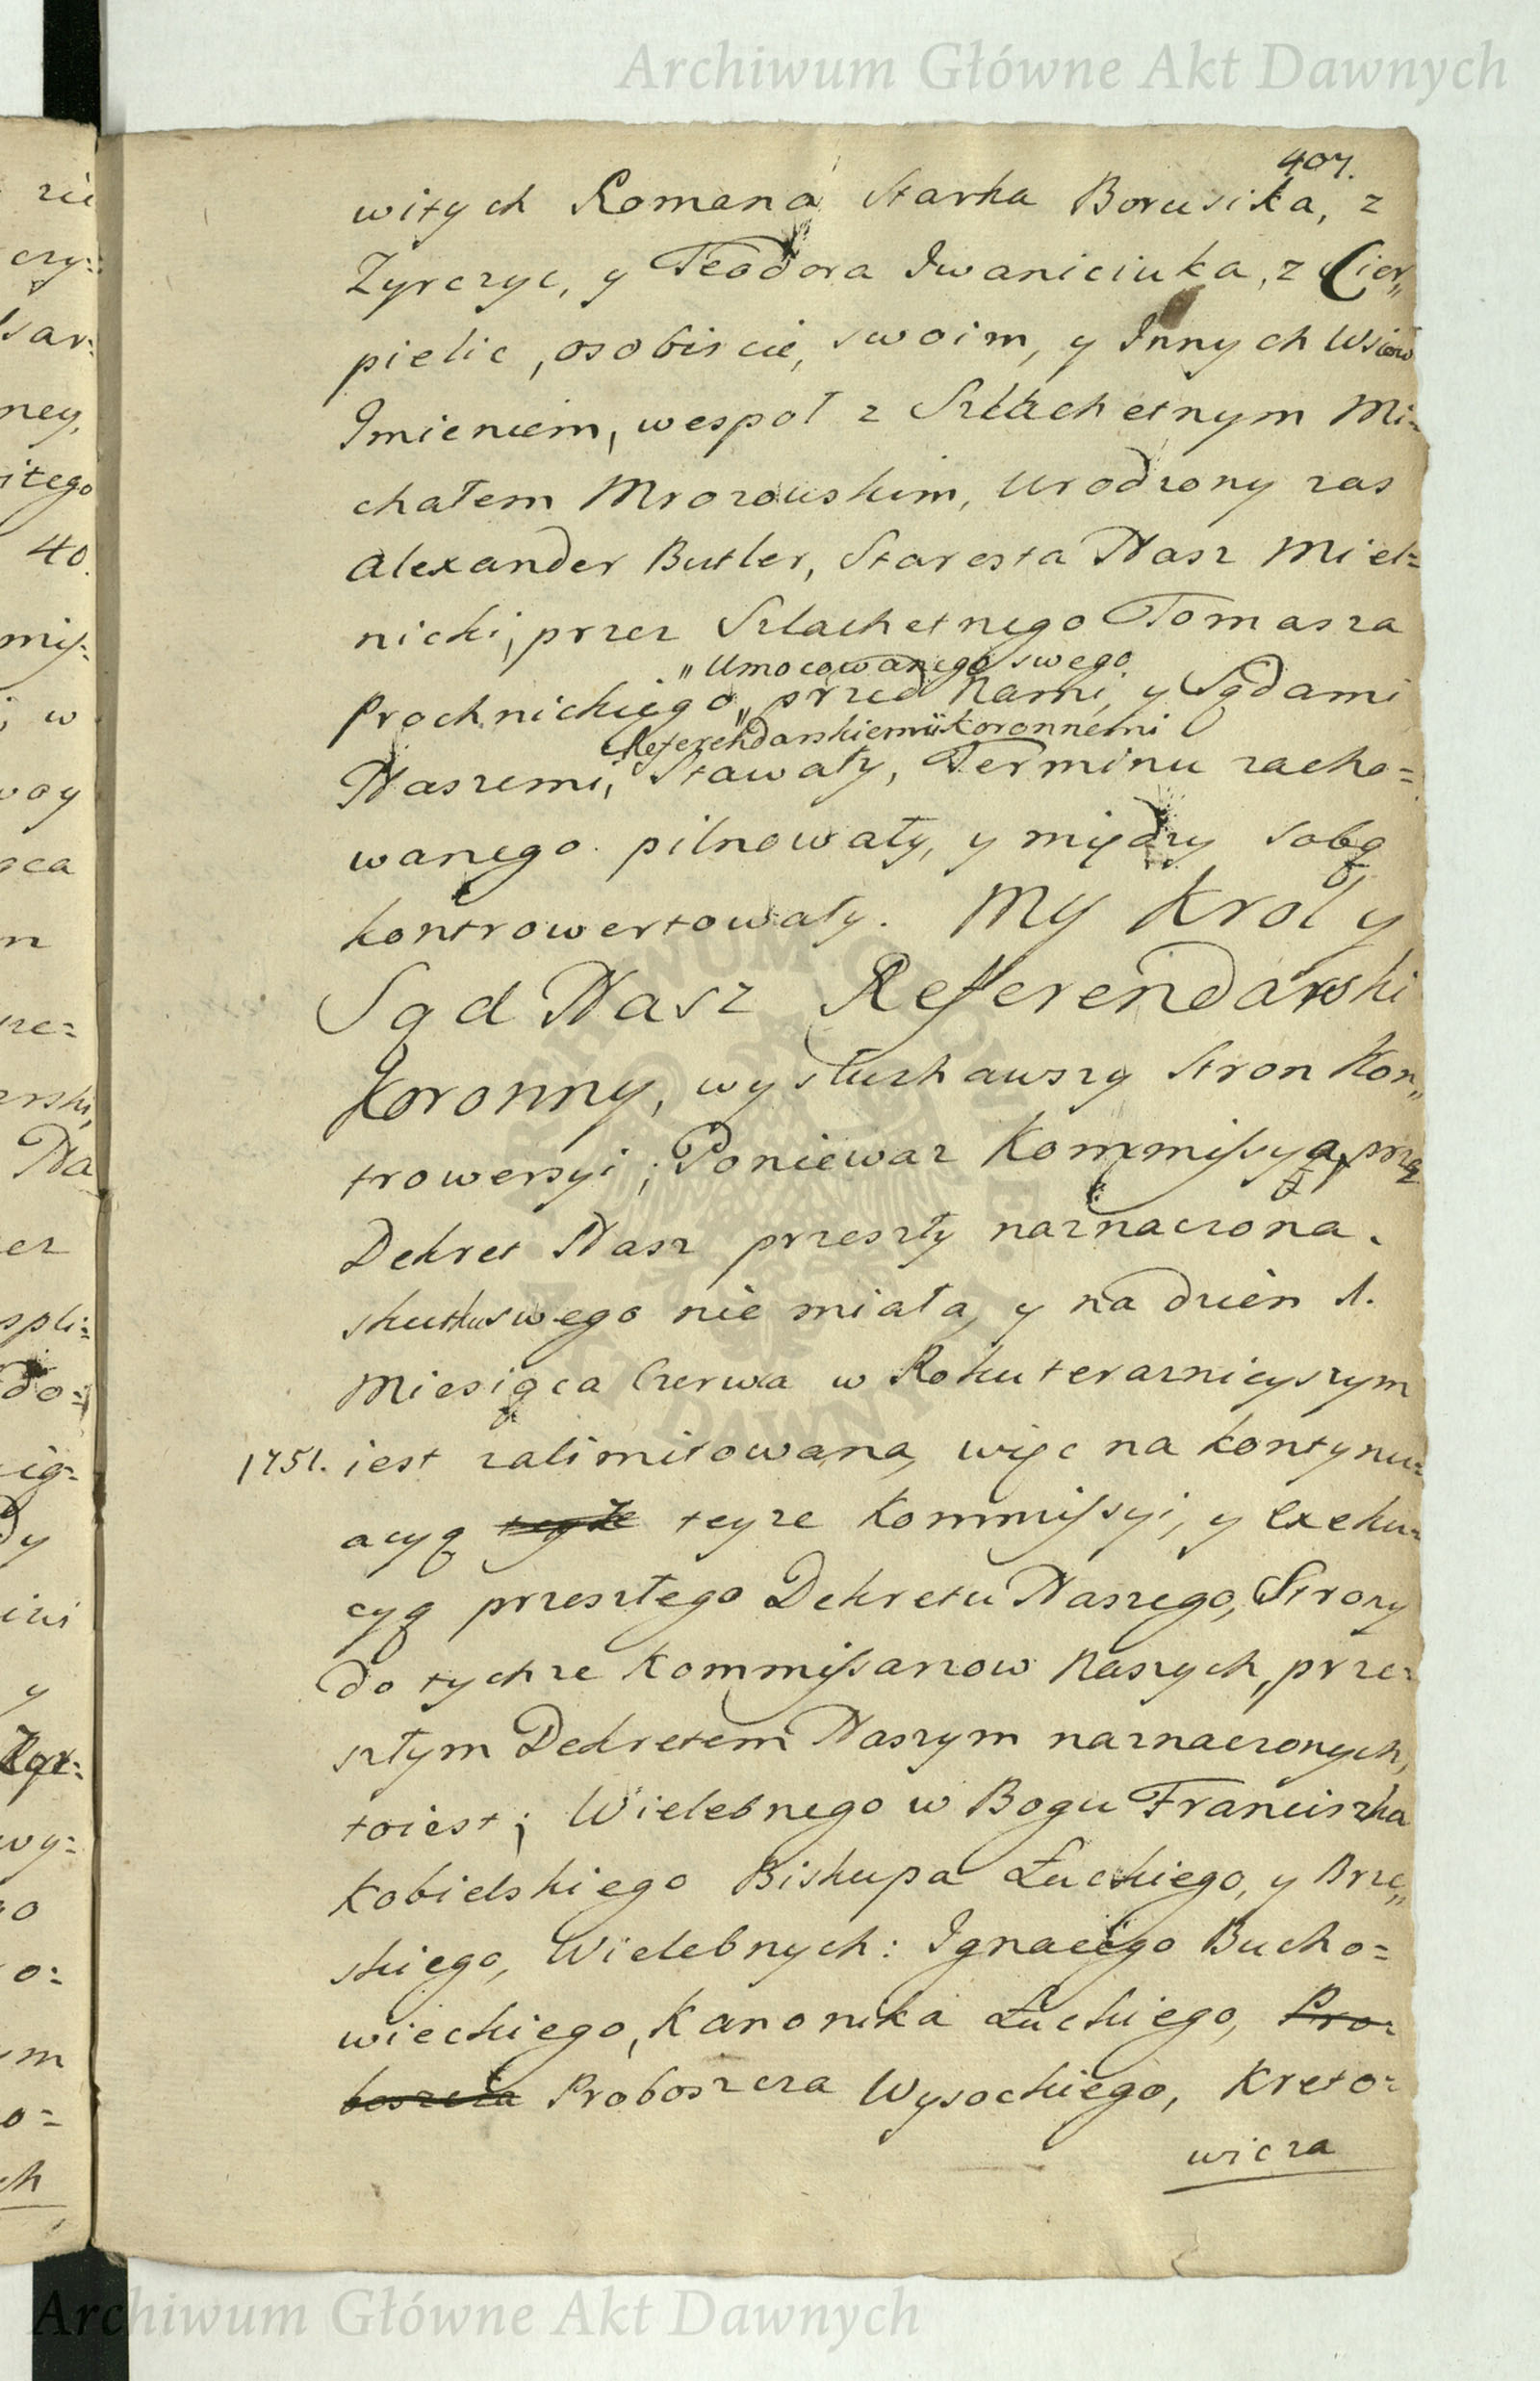 Archiwum Główne Akt Dawnych
407.
witych Romana Starka Borusika, z
Zyrczyc, y Teodora Iwaniciuka, z Cier„
pielic, osobiscie, swoim, y Innych Wsiow
Imieniem, wespoł z Szlachetnym Mi=
chałem Mrozowskim, Urodzony zas
Alexander Butler, Starosta Nasz Miel=
nicki, przez Szlachetnego Tomasza
„Umocowanego swego
Prochnickiego„ przed Nami, y Sądami
Referendarskiemi Koronnemi
Naszemi, Stawały, Terminu zacho=
wanego pilnowały, y między sobą
kontrowertowały. My Krol y
Sąd Nasz Referendarski
Koronny, wysłuchawszy Stron Kon„
trowersyi; Poniewaz Kommissya, przez
Dekret Nasz przeszły naznaczona.
skutku swego nie miała, y na dzien 1.
Miesiąca Czerwa w Roku teraznieyszym
1751. iest zalimitowana, więc na kontynu=
acyą teyze teyze Kommissyi, y Exeku=
cyą przeszłego Dekretu Naszego, Strony
do tychze Kommissarzow Naszych, prze=
szłym Dekretem Naszym naznaczonych,
toiest; Wielebnego w Bogu Franciszka
Kobielskiego Biskupa Łuckiego, y Brze„
skiego, Wielebnych: Ignacego Bucho=
wieckiego, Kanonika Łuckiego, Pro=
boszcza Proboszcza Wysockiego, Kreto=
wicza
Archiwum Główne Akt Dawnych